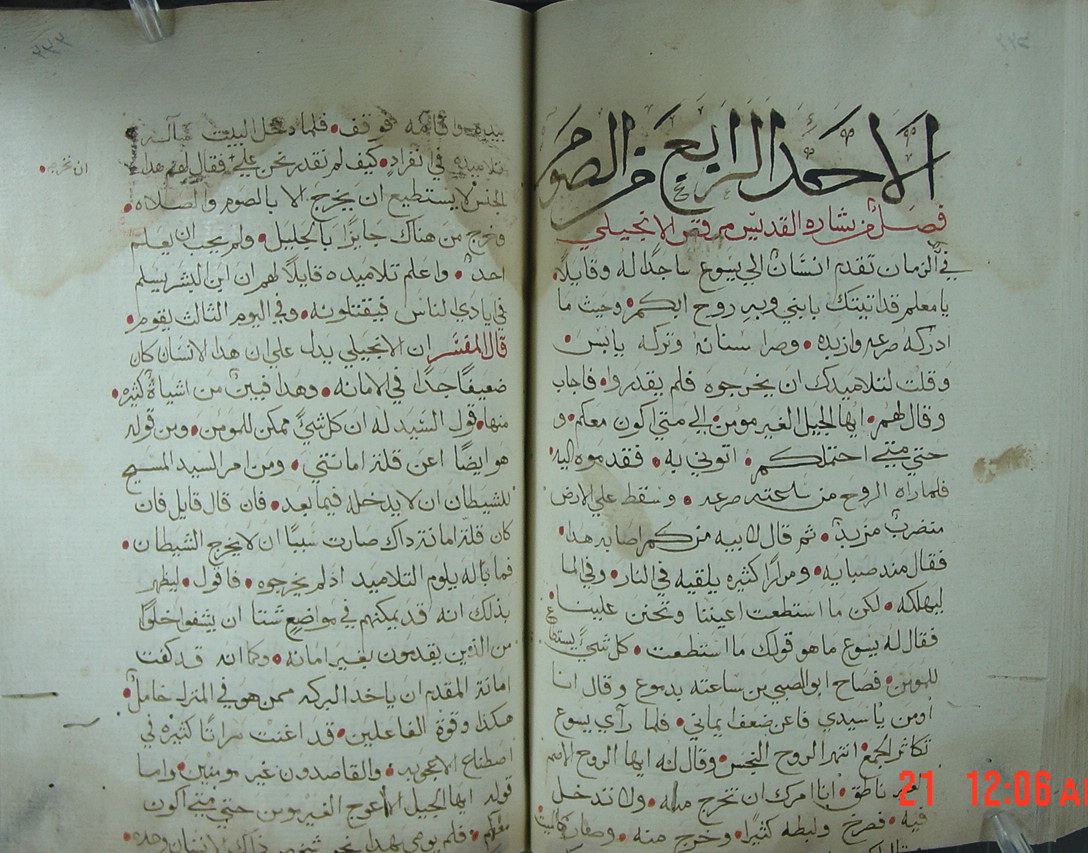 الاحد الرابع من الصوم
فصل من بشاره القديس مرقص الانجيلي
في ذلك الزمان تقدم انسان الي يسوع ساجدا له وقايلا
يا معلم قد اتيتك بابني وبه روح ابكم وحيث ما
ادركه صرعه وازبده وصر اسنانه وتركه يابس
وقلت لتلاميدك ان يخرجوه فلم يقدروا فاجاب
وقال لهم ايها الجيل الغير مومن الي متي اكون معكم و
حتي متي احتملكم اتوني به فقدموه اليه
فلما راه الروح من ساعته صرعه وسقط علي الارض
مضرب مزبد ثم قال لابيه من كم اصابه هدا
فقال مند صبايه ومرارا كثيره يلقيه في النار وفي الما
ليهلكه لكن ما استطعت اعيننا وتحنن علينا
فقال له يسوع ما هو قولك ما استطعت كل شي يستطاع
للمومن فصاح ابو الصبي من ساعته بدموع وقال انا
اومن يا سيدي فاعن ضعف ايماني فلما رآي يسوع
تكاثر الجمع انتهر الروح النجس وقال له ايها الروح الاصم
الغير ناطق انا امرك ان تخرج منه ولا تدخل
فيه فصرخ ولبطه كثيرا وخرج منه وصار كالميت
بيده واقامه فوقف فلما دخل البيت ساله
تلاميده في انفراد كيف لم نقدر نحن علي فقال لهم هدا
ان نخرجه
الجنس لا يستطيع ان يخرج الا بالصوم والصلاه
وخرج من هناك جايزا بالجليل ولم يحب ان يعلم
احد واعلم تلاميده قايلا لهم ان ابن البشر يسلم
في ايادي الناس فيقتلونه وفي اليوم الثالث يقوم
قال المفسر ان الانجيلي يدل علي ان هدا الانسان كان
ضعيفا جدا في الامانه وهدا فبين من اشيا كثيره
منها قول السيد له ان كل شي ممكن للمومن ومن قوله
هو ايضا اعن قلة امانتي ومن امر السيد المسيح
للشيطان ان لا يدخله فيما بعد فان قال قايل فان
كان قلة امانة داك صارت سببا ان لا يخرج الشيطان
فما باله يلوم التلاميد اد لم يخرجوه فاقول ليظهر
بدلك انه قد يمكنهم في مواضع شتا ان يشفوا خلوا
من الدين يقدمون بغير امانه وكما انه قد كفت
امانة المقدم ان ياخد البركه ممن هو في المنزله خامل
هكدا وقوة الفاعلين قد اغنت مرارا كثيره في
اصطناع الاعجوبه والقاصدون غير مومنين واما
قوله ايها الجيل الاعوج الغير مومن حتي متي اكون
معكم فلم يومي بهدا نحو شخص داك الانسان وحده
21 12:06 AM